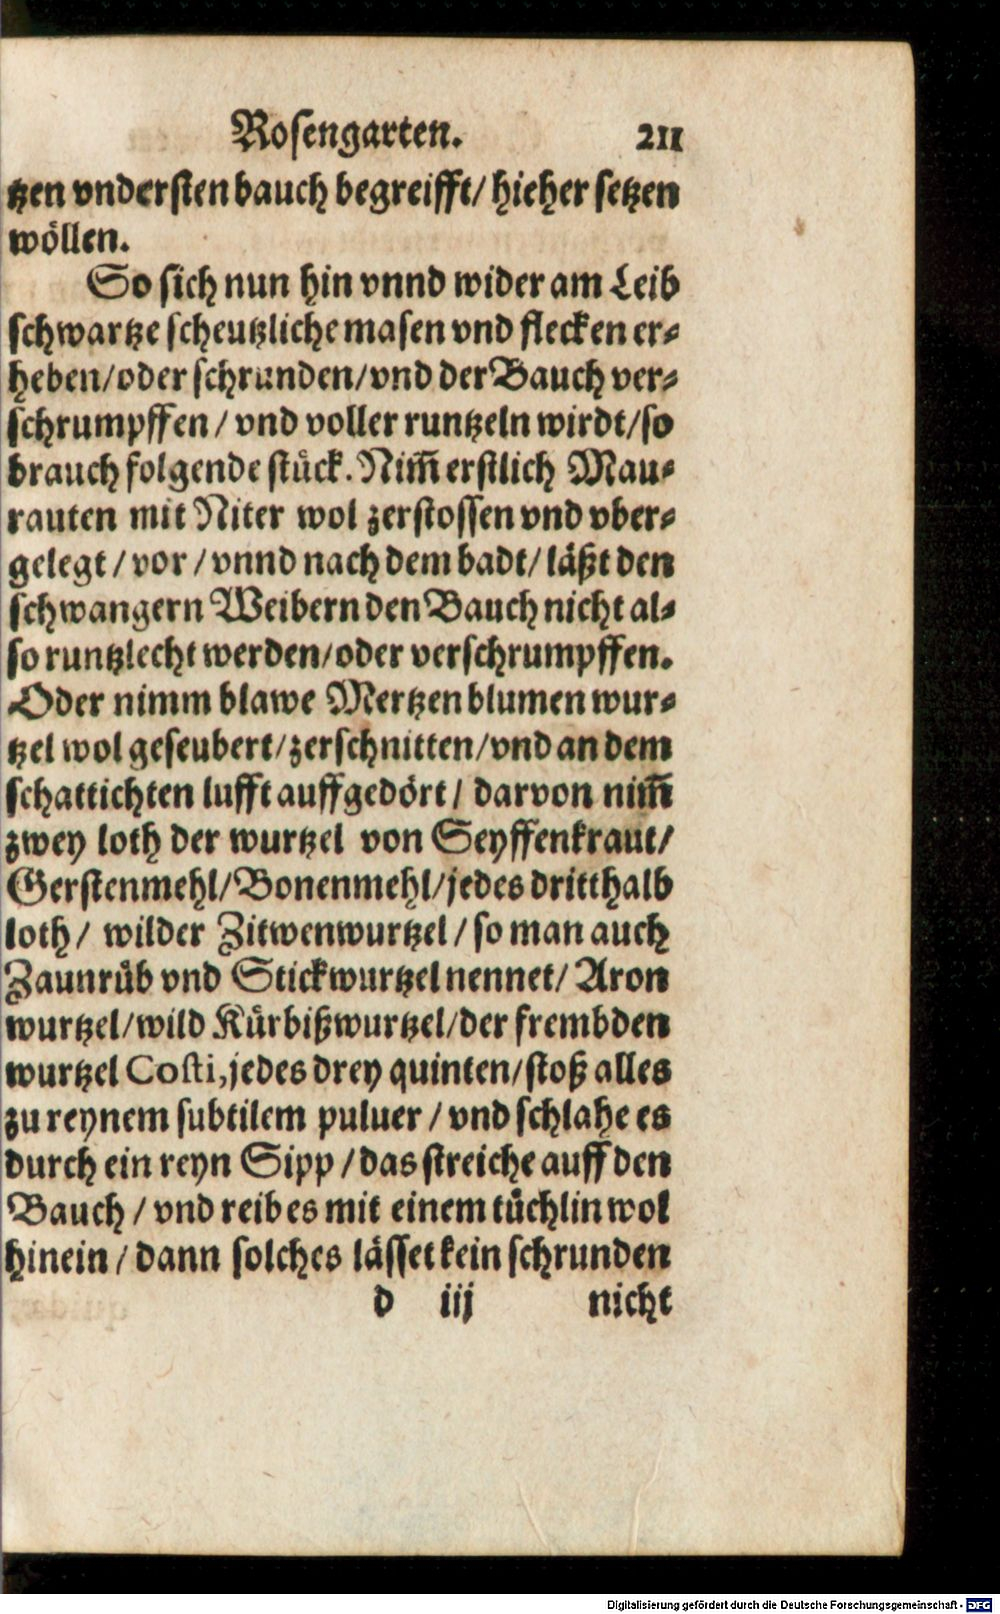 Rosengarten. 211
tzen vndersten bauch begreifft/ hieher setzen
wöllen.
So sich nun hin vnnd wider am Leib
schwartze scheutzliche masen vnd flecken er-
heben/oder schrunden/vnd der Bauch ver-
schrumpffen / vnd voller runtzeln wirdt/so
brauch folgende stück. Nim̃ erstlich Mau-
rauten mit Niter wol zerstossen vnd vber-
gelegt / vor / vnnd nach dem badt/ läßt den
schwangern Weibern den Bauch nicht al-
so runtzlecht werden/oder verschrumpffen.
Oder nimm blawe Mertzenblumen wur-
tzel wol geseubert/zerschnitten/vnd an dem
schattichten lufft auffgedört / darvon nim̃
zwey loth der wurtzel von Seyffenkraut/
Gerstenmehl/Bonenmehl/jedes dritthalb
loth/ wilder Zitwenwurtzel / so man auch
Zaunrüb vnd Stickwurtzel nennet/ Aron
wurtzel/wild Kürbißwurtzel/der frembden
wurtzel Costi,jedes drey quinten/stoß alles
zu reynem subtilem puluer / vnd schlahe es
durch ein reyn Sipp / das streiche auff den
Bauch / vnd reib es mit einem tüchlin wol
hinein / dann solches lässet kein schrunden
d iij nicht
Digitalisierung gefördert durch die Deutsche Forschungsgemeinschaft - DFG